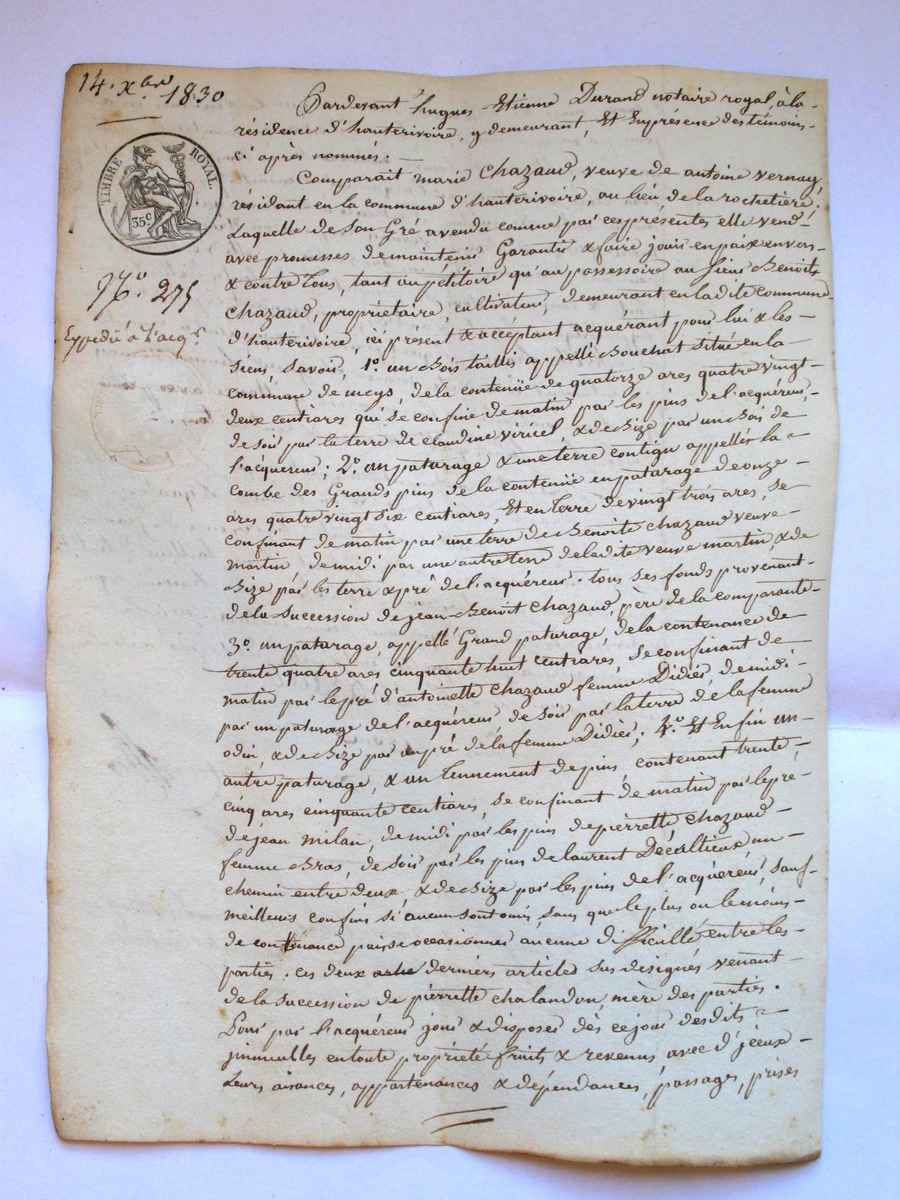 14. xbre 1830
TIMBRE ROYAL.
35c
No. 275
Expédié à l'acqr
Pardevant hugues Etienne Durand notaire royal, à la
résidence d'hauterivoire, y demeurant, et En presence des témoins
ci après nommés.
Comparait marie Chazaud, veuve de antoine vernay,
résidant en la commune d'hauterivoire, au lieu de la rochetière.
Laquelle de son Gré a vendu comme par ces présentes elle vend
avec promesses de maintenir Garantir & faire jouir en paix envers
& contre tous, tant au pétitoire qu'au possessoire au sieur Benoit
Chazaud, propriétaire, cultivateur, demeurant en la dite commune
d'hauterivoire, ici présent & acceptant acquérant pour lui & les
siens, savoir, 1o. un Bois taillis appellé Bouchat situé en la
commune de meys, de la contenüe de quatorze ares quatre vingt
deux centiares qui se confine de matin par les pins de l'acquéreur,
de soir par la terre de claudine viricel, & de Bize par un Bois de
l'acquereur; 2o. un paturage & une terre contigu appellés la
combe des Grands pins de la contenüe en paturage de onze
ares quatre vingt six centiares, Et en terre de vingt trois ares, se
confinant de matin par une terre de Benoite chazaud veuve
martin de midi par une autre terre de la dite veuve martin, & de
Bize par les terre & pré de l'acquéreur. tous ses fonds provenant
de la succession de jean Benoit Chazaud, père de la comparante
3o. un paturage, appellé Grand paturage, de la contenance de
trente quatre ares cinquante huit centiares, se confinant de
matin par le pré d'antoinette chazaud femme Didier, de midi
par un paturage de l'acquéreur de soir par la terre de la femme
odin, & de Bize par un pré de la femme Didier; 4o. Et Enfin un
autre paturage, & un tennement de pins, contenant trente
cinq ares cinquante centiares, se confinant de matin par le pré
de jean milan, de midi par les pins de pierrette chazaud
femme Bras, de soir par les pins de laurent Décultieux un
chemin entre deux, & de Bize par les pins de l'acquéreur, sauf
meilleurs confins si aucun sont omis sans que le plus ou le moins
de contenance puisse occasionner aucune difficulté entre les
parties. ces deux derniers articles sus désignés venant
de la succession de pierrette chalandon, mère des parties.
Pour par l'acquéreur jouir & disposer dès ce jour desdits
jmmeubles en toute propriété fruits & revenus avec d'jceux
leurs aisances, appartenances & dépendances, passages, prises